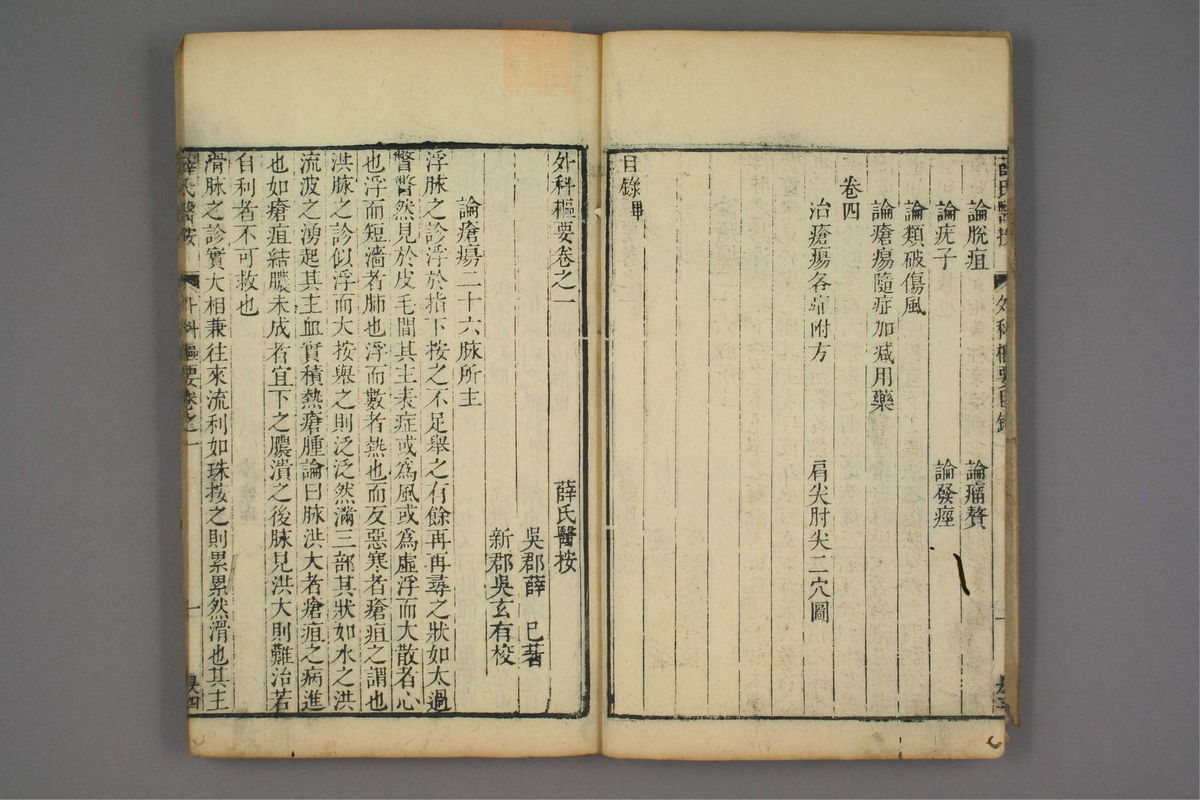 薛氏醫按 外科樞要目錄 一
論脫疽 論瘤贅
論疣子 論發痙
論類破傷風
論瘡瘍隨症加減用藥
卷四
治瘡瘍各症附方 肩尖肘尖二穴圖
目錄畢
外科樞要卷之一 薛氏醫按
吳郡薛 已著
新郡吳玄有校
論瘡瘍二十六脉所主
浮脉之診浮於指下按之不足舉之有餘再再尋之狀如太過
瞥瞥然見於皮毛間其主表症或為風或為虛浮而大散者心
也浮而短濇者肺也浮而數者熱也而反惡寒者瘡疽之謂也
洪脉之診似浮而大按舉之則泛泛然滿三部其狀如水之洪
流波之湧起其主血實積熱瘡腫論曰脉洪大者瘡疽之病進
也如瘡疽結膿未成者宜下之膿潰之後脉見洪大則難治若
自利者不可救也
滑脉之診實大相兼往來流利如珠按之則累累然滑也其主
薛氏醫按 外科樞要卷之一 一